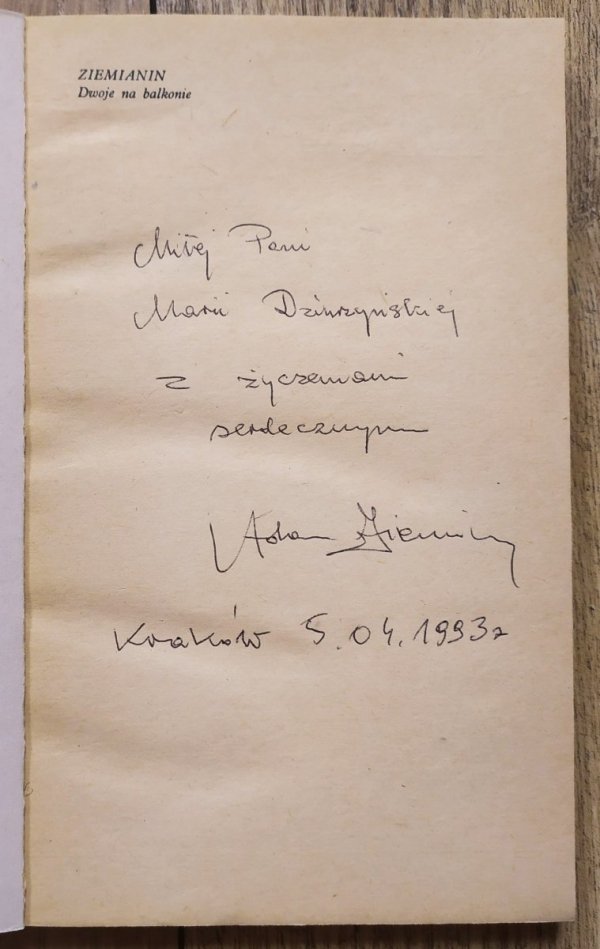 ZIEMIANIN
Dwoje na balkonie
Miłej Pani
Marii Dziurzyńskiej
z życzeniami
serdecznymi
Adam Ziemianin
Kraków 5.04.1993r